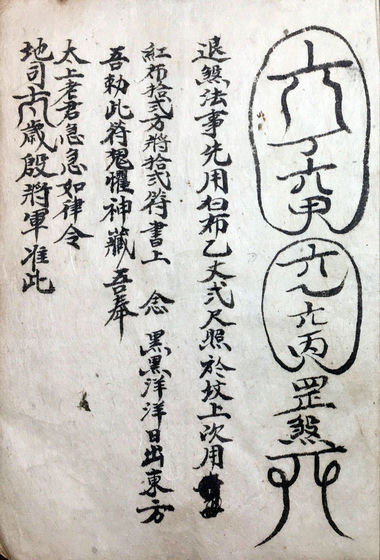 六丁六甲六乙六丙罡煞
退煞法事先用白布乙丈弍尺照於坟上次用
紅布拾弍方將拾弍符書上 念 黑黑洋洋日出東方
吾勅此符鬼懼神藏吾奉
太上老君急急如律令
地司太歲殷將軍准此